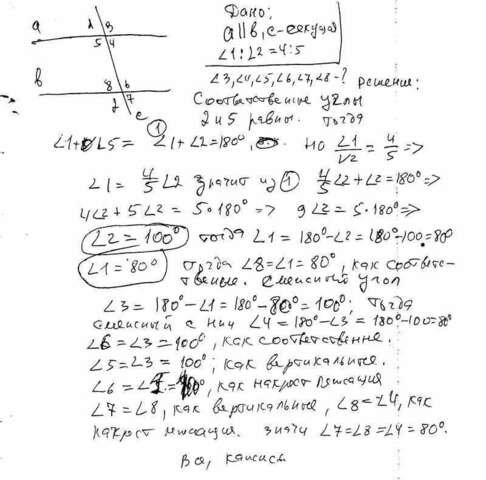 Дано:
a||b, c-секущая
∠1:∠2 = 4:5
∠3,∠4,∠5,∠6,∠7,∠8-?
Решение:
a
1 3
5 4
b
8 6
2 7
c
Соответственные углы
2 и 5 равны. Тогда
∠1+∠5 = ∠1+∠2=180°, но ∠1/∠2 = 4/5 =>
∠1 = 4/5 ∠2 значит из ① 4/5 ∠2+∠2=180° =>
4∠2 + 5∠2 = 5·180° => 9∠2 = 5·180° =>
∠2 = 100° тогда ∠1 = 180°-∠2 = 180°-100=80
∠1 = 80° тогда ∠8=∠1 = 80°, как соответс-
твенные. Смежный угол
∠3 = 180°-∠1 = 180°-80° = 100°; тогда
смежный с ним ∠4 = 180°-∠3 = 180°-100=80
∠6 = ∠3 = 100°, как соответственне.
∠5 = ∠3 = 100°; как вертикальные.
∠6 = как накрест лежащия
∠7 = ∠8, как вертикальные, ∠8 = ∠4, как
накрест лежащия. значит ∠7=∠8=∠4 = 80°.